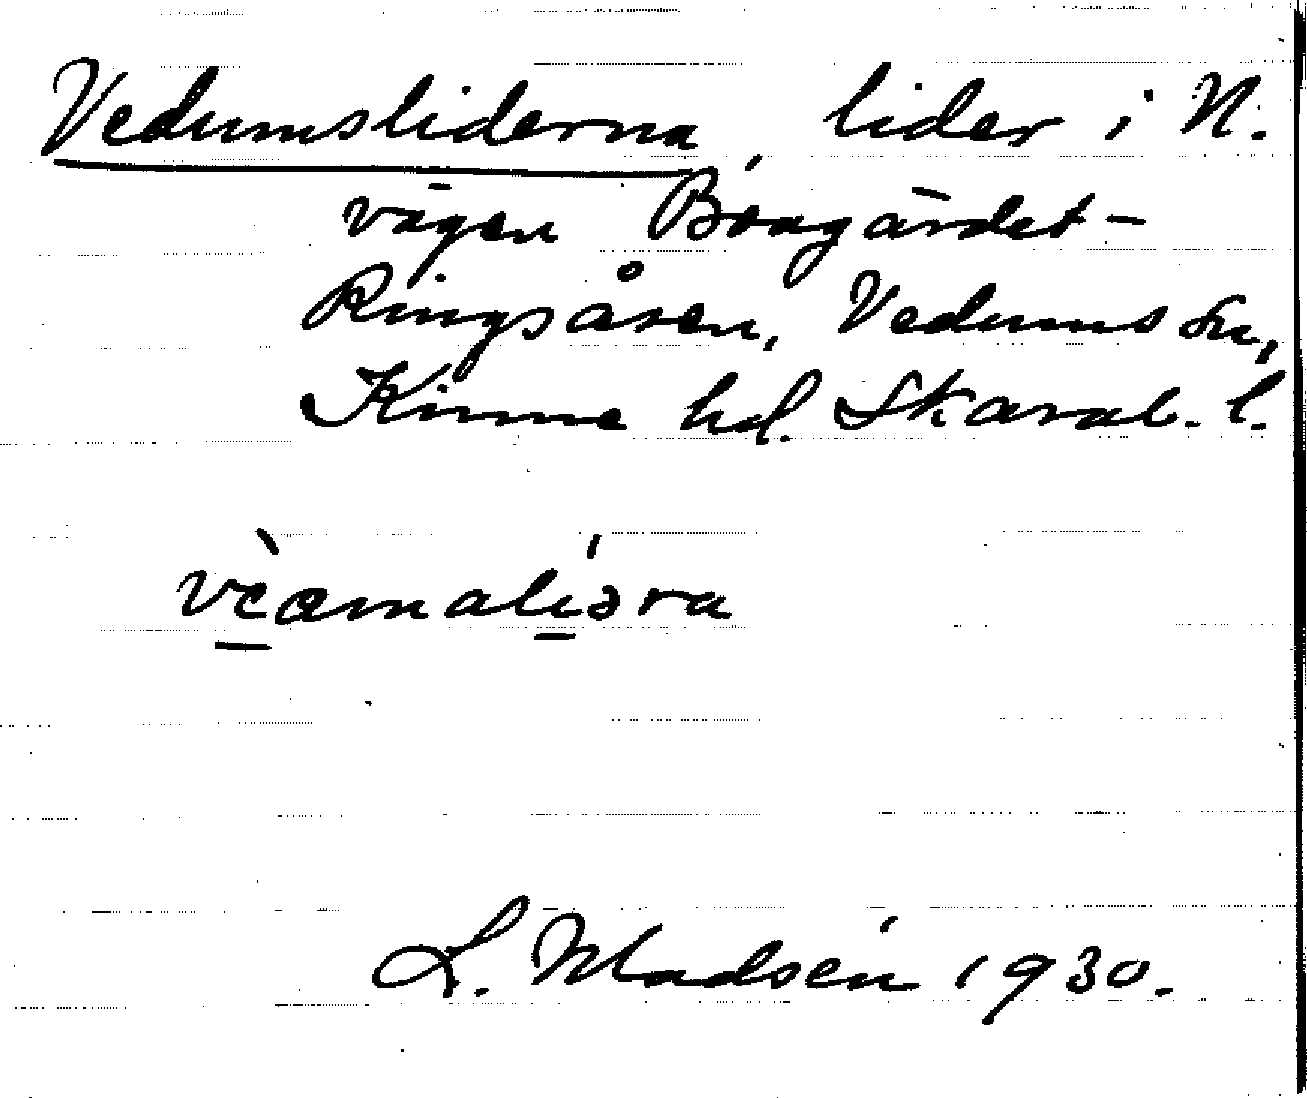 Vedumsliderna, lider i N.
vägen Broagärdet-
Ringsåsen, Vedums sn,
Kinne hd. Skarab. l.
L. Madsén 1930.